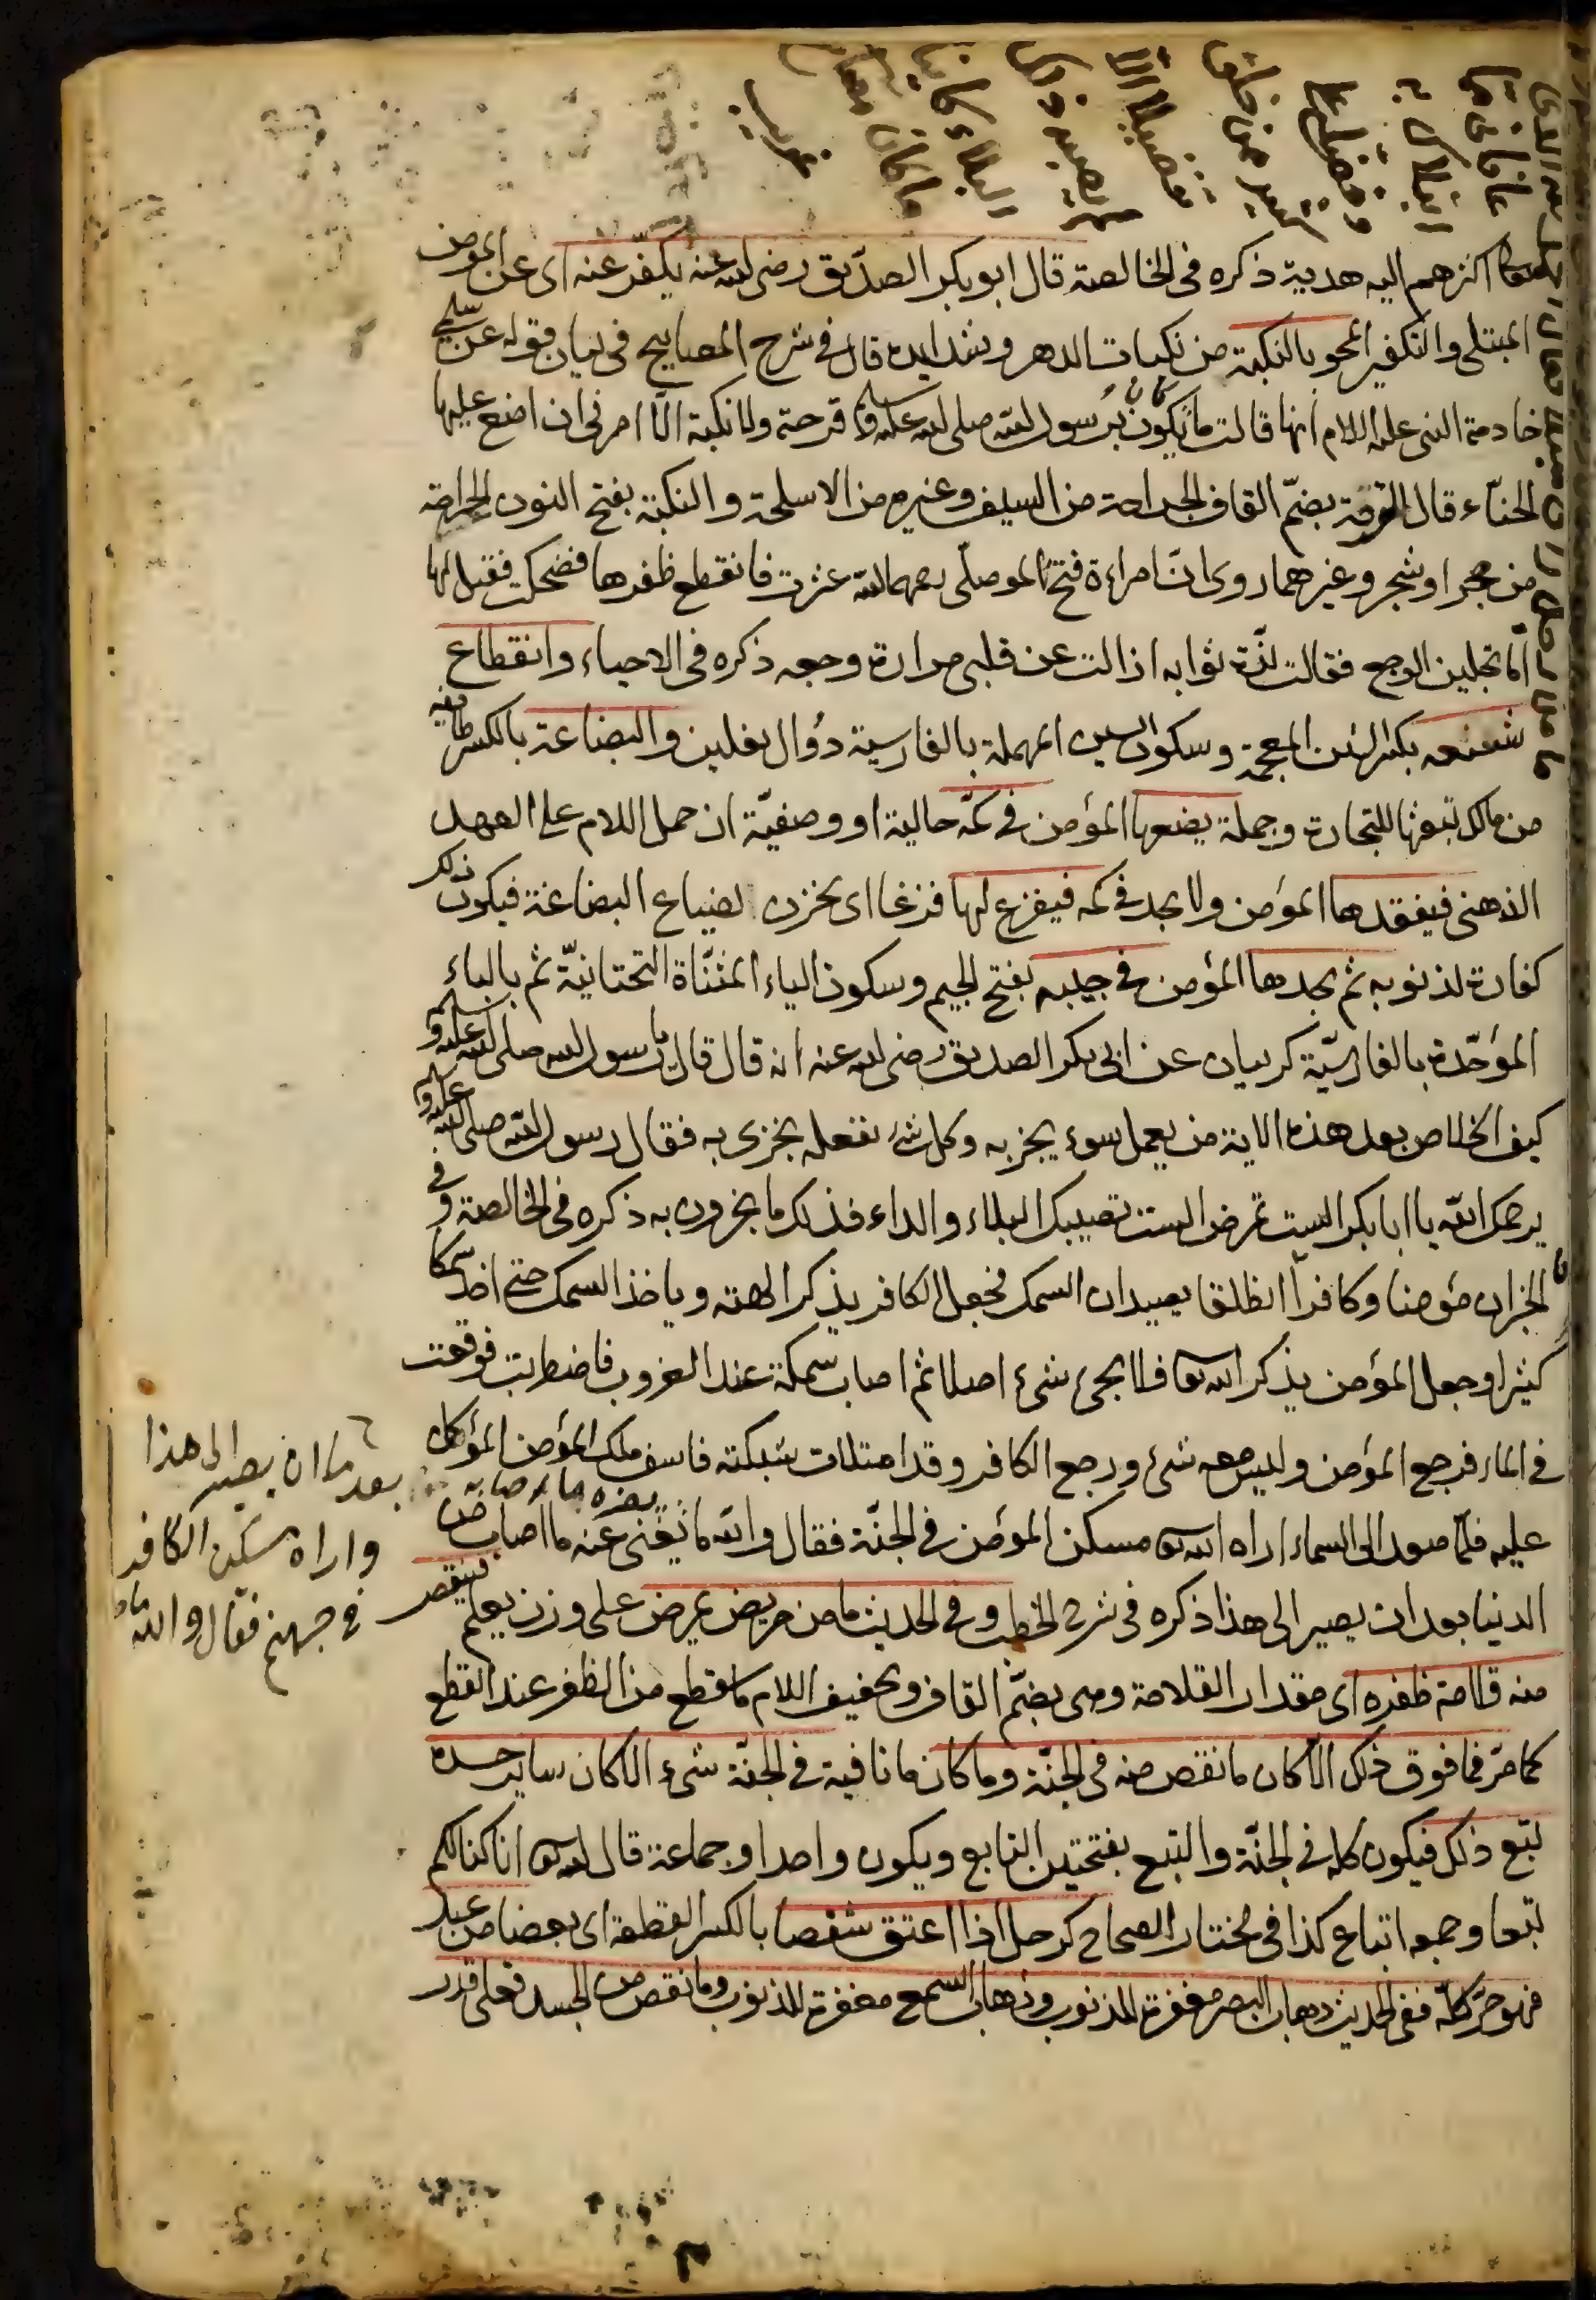 اكثرهم اليه هدية ذكره فى الخالصة قال ابو بكر الصدّيق رضى الله عنه يكفّر عنه اى عن المؤمن
المبتلى والتكفير المحو بالنكبة من نكبات الدهر وشدايده قال فى شرح المصابيح فى بيان قوله عن سلمى
خادمة النبى عليه السلام انها قالت ما يكون برسول الله صلى الله عليه وسلم قرحة ولا نكبة الّا امرنى ان اضع عليها
الحنّاء قال القرحة بضمّ القاف الجراحة من السيف وغيره من الاسلحة والنكبة بفتح النون الجراحة
من حجر او شجر وغيرهما روى انّ امراءة فتح الموصلّى رحمهما الله عثرت فانقطع ظفرها فضحكت فقيل لها
اما تجدين الوجع فقالت لذّة ثوابه ازالت عن قلبى مرارة وجعه ذكره فى الاحياء وانقطاع
شسعه بكسر الشين المعجمة وسكون السين المهملة بالفارسية دوال نعلين والبضاعة بالكسر طائفة
من مالك تبعثها للتجارة وجملة يضعها المؤمن فى كمّه حالية او وصفيّة ان حمل اللام على العهد
الذهنى فيفقدها المؤمن ولا يجد فى كمه فيفزع لها فزعا اى يحزن لضياع البضاعة فيكون ذلك
كفارة لذنوبه ثم يجدها المؤمن فى جيبه بفتح الجيم وسكون الياء المثنّاة التحتانيّة ثم بالباء
المؤحّدة بالفارسيّة كريبان عن ابى بكر الصديق رضى الله عنه انه قال قال يا رسول الله صلى الله عليه وسلم
كيف الخلاص بعد هذه الاية من يعمل سوء يجز به وكل شئ نفعله يجزى به فقال رسول الله صلى الله عليه و
يرحمك الله يا ابا بكر الست تمرض الست تصيبك البلاء والداء فذلك ما يجزون به ذكره فى الخالصة وفى
الخبر ان مؤمنا وكافراً انطلقا يصيدان السمك فجعل الكافر يذكر الهته وياخذ السمك حتى اخذ سمكا
كثيرا وجعل المؤمن يذكر الله تعالى فلا يجئ شئ اصلا ثم اصاب سمكة عند الغروب فاضطربت فوقعت
فى الماء فرجع المؤمن وليس معه شئ ورجع الكافر وقد امتلات شبكته فاسف ملك المؤمن المؤكل
عليه فلمّا صعد الى السماء اراه الله تعالى مسكن المؤمن فى الجنّة فقال والله ما يغنى عنه ما اصاب من
يضره ما اصابه بعد ما ان يصير الى هذا
واراه مسكن الكافر
فى جهنم فقال والله ما
الدنيا بعد ان يصير الى هذا ذكره فى شرح الخطب وفى الحديث ما من مريض يمرض على وزن يعلم فينقص
منه قلامة ظفره اى مقدار القلامة وهى بضمّ القاف وتخفيف اللام ما قطع من الظفر عند القطع
كما مرّ فما فوق ذلك الّا كان ما نقص منه فى الجنّة وما كان ما نافية فى الجنّة شئ الا كان ساير جسده
تبّع ذلك فيكون كله فى الجنّة والتبع بفتحتين التابع ويكون واحدا وجماعة قال الله تعالى انا كنا لكم
تبعا وجمعه اتباع كذا فى مختار الصحاح كرجل اذا اعتق شقصا بالكسر القطعة اى بعضا من عبد
فهو حرّ كلّه ففى الحديث ذهاب البصر مغفرة للذنوب وذهاب السمع مغفرة للذنوب وما نقص من الجسد فعلى قدر